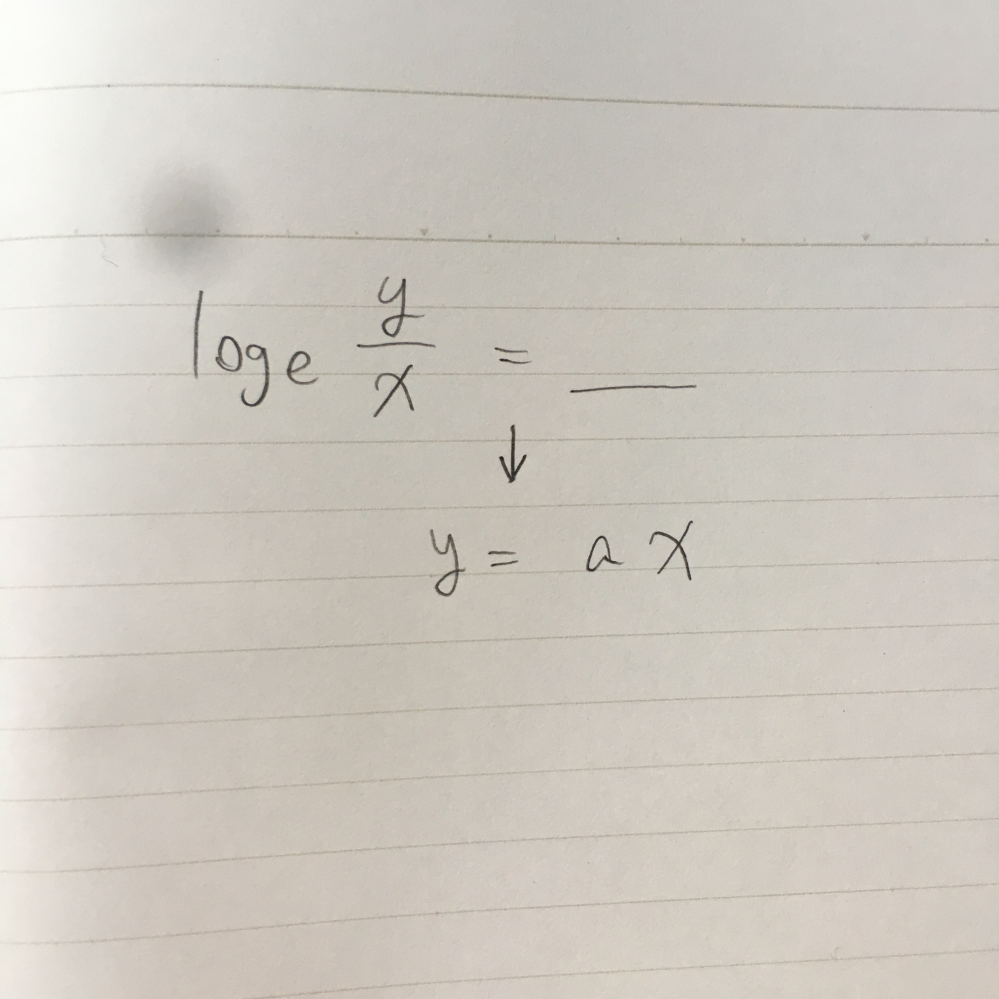 loge y/x = ___
↓
y = ax